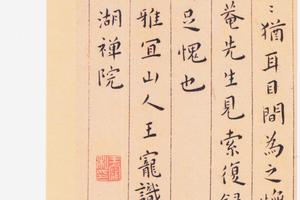 〻猶耳目間為之
菴先生見索復録
足愧也
雅宜山人王寵識
湖禪院